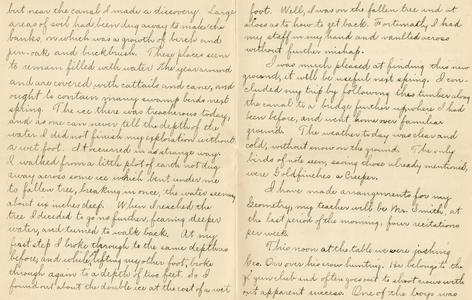 but near the canal I made a discovery. Large
areas of soil had been dug away to make the
banks, on which was a growth of birch and
pin-oak and buckbrush. These places seem
to remain filled with water the year around
and are covered with cattails and canes, and
ought to contain many swamp birds next
spring. The ice there was treacherous today,
and as one can never tell the depth of the
water I did not finish my exploration without
a wet foot. It occurred in a strange way.
I walked from a little plot of earth not dug
away across some ice which bent under me
to fallen tree, breaking in once, the water seeming
about six inches deep. When I reached the
tree I decided to go no further, fearing deeper
water, and turned to walk back. At my
first step I broke through to the same depth as
before, and while lifting my other foot, broke
through again to a depth of two feet. So I
found out about the double ice at the cost of a wet
foot. Well, I was on the fallen tree and at
a loss as to how to get back. Fortunately I had
my staff in my hand and vaulted across
without further mishap.
I was much pleased at finding this new
ground; it will be useful next spring. I con-
cluded my trip by following this timber along
the canal to a bridge further up where I had
been before, and went home over familiar
ground. The weather today was clear and
cold, without snow on the ground. The only
birds of note seen, saving those already mentioned,
were Goldfinches & Creeper.
I have made arrangements for my
Geometry; my teacher will be Mr. Smith, at
the last period of the morning, four recitations
per week.
This noon at the table we were joshing
Geo. Orr over his crow hunting. He belongs to the
gun club and often goes out to shoot crows with-
out apparent success. One of the boys was